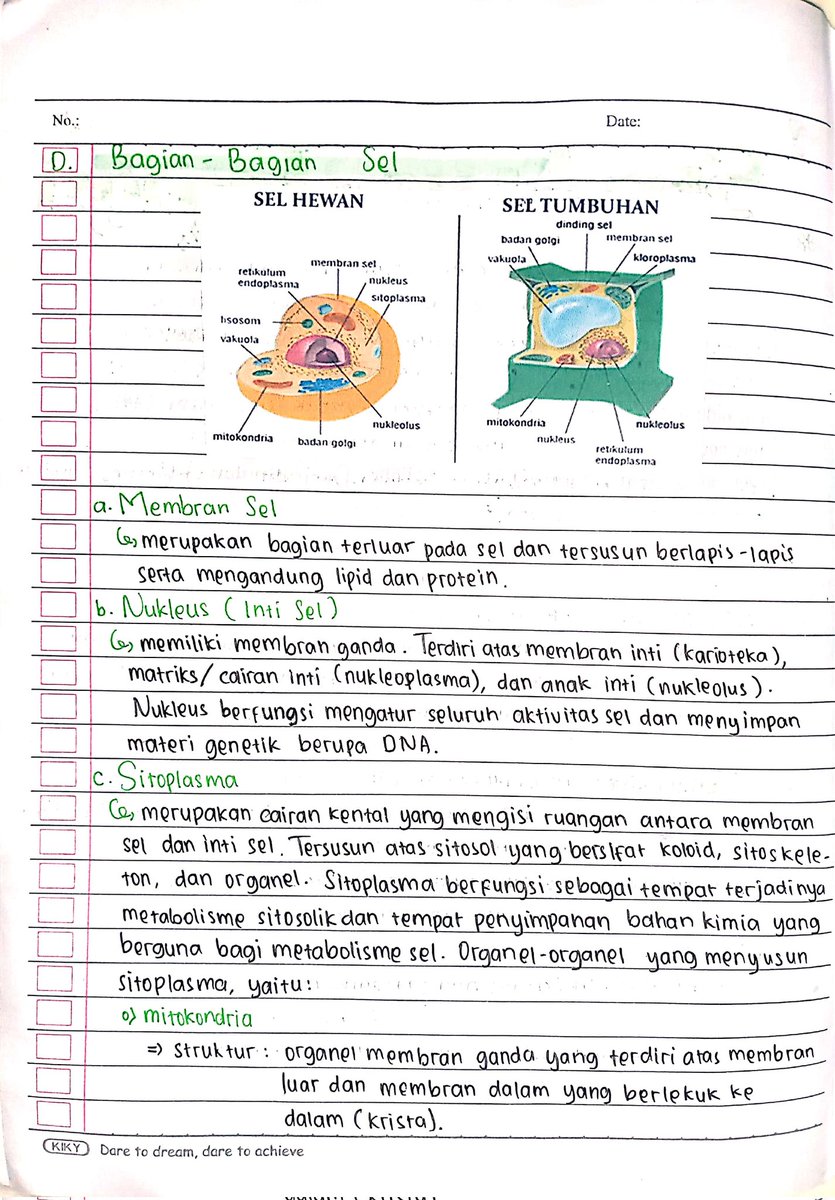 No.: Date:
D. Bagian - Bagian Sel
SEL HEWAN
membran sel
retikulum
endoplasma
nukleus
sitoplasma
lisosom
vakuola
mitokondria
badan golgi
nukleolus
SEL TUMBUHAN
dinding sel
badan golgi
membran sel
vakuola
kloroplasma
mitokondria
nukleus
retikulum
endoplasma
nukleolus
a. Membran Sel
merupakan bagian terluar pada sel dan tersusun berlapis-lapis
serta mengandung lipid dan protein.
b. Nukleus (Inti Sel)
memiliki membran ganda. Terdiri atas membran inti (karioteka),
matriks/cairan inti (nukleoplasma), dan anak inti (nukleolus).
Nukleus berfungsi mengatur seluruh aktivitas sel dan menyimpan
materi genetik berupa DNA.
c. Sitoplasma
merupakan cairan kental yang mengisi ruangan antara membran
sel dan inti sel. Tersusun atas sitosol yang bersifat koloid, sitoskele-
ton, dan organel. Sitoplasma berfungsi sebagai tempat terjadinya
metabolisme sitosolik dan tempat penyimpanan bahan kimia yang
berguna bagi metabolisme sel. Organel-organel yang menyusun
sitoplasma, yaitu:
o) mitokondria
=> struktur : organel membran ganda yang terdiri atas membran
luar dan membran dalam yang berlekuk ke
dalam (krista).
KIKY Dare to dream, dare to achieve